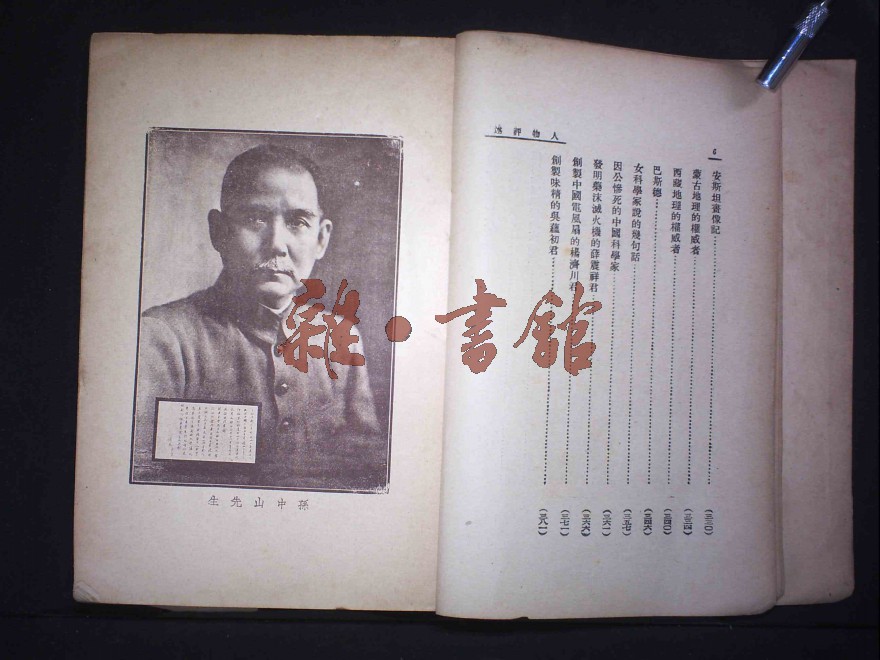 6
安斯坦畫像記……(三三〇)
蒙古地理的權威者……(三三四)
西藏地理的權威者……(三四〇)
巴斯德……(三四六)
女科學家說的幾句話……(三五七)
因公慘死的中國科學家……(三六一)
發明藥沫滅火機的薛震祥君……(三六六)
創製中國電風扇的楊濟川君……(三七一)
創製味精的吳蘊初君……(三八一)
人物評述
孫中山先生
雜·書館